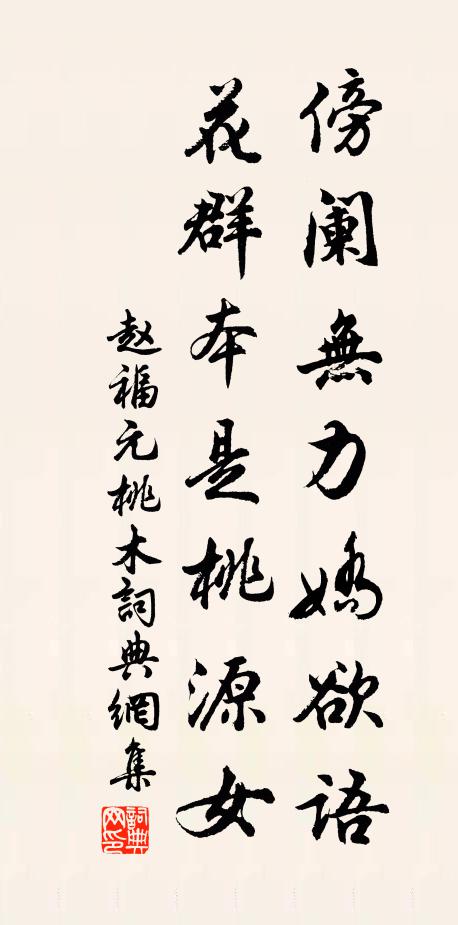 傍阑無力嬌欲語
花群本是桃源女
赵福元桃木詞典網集
詞典网印